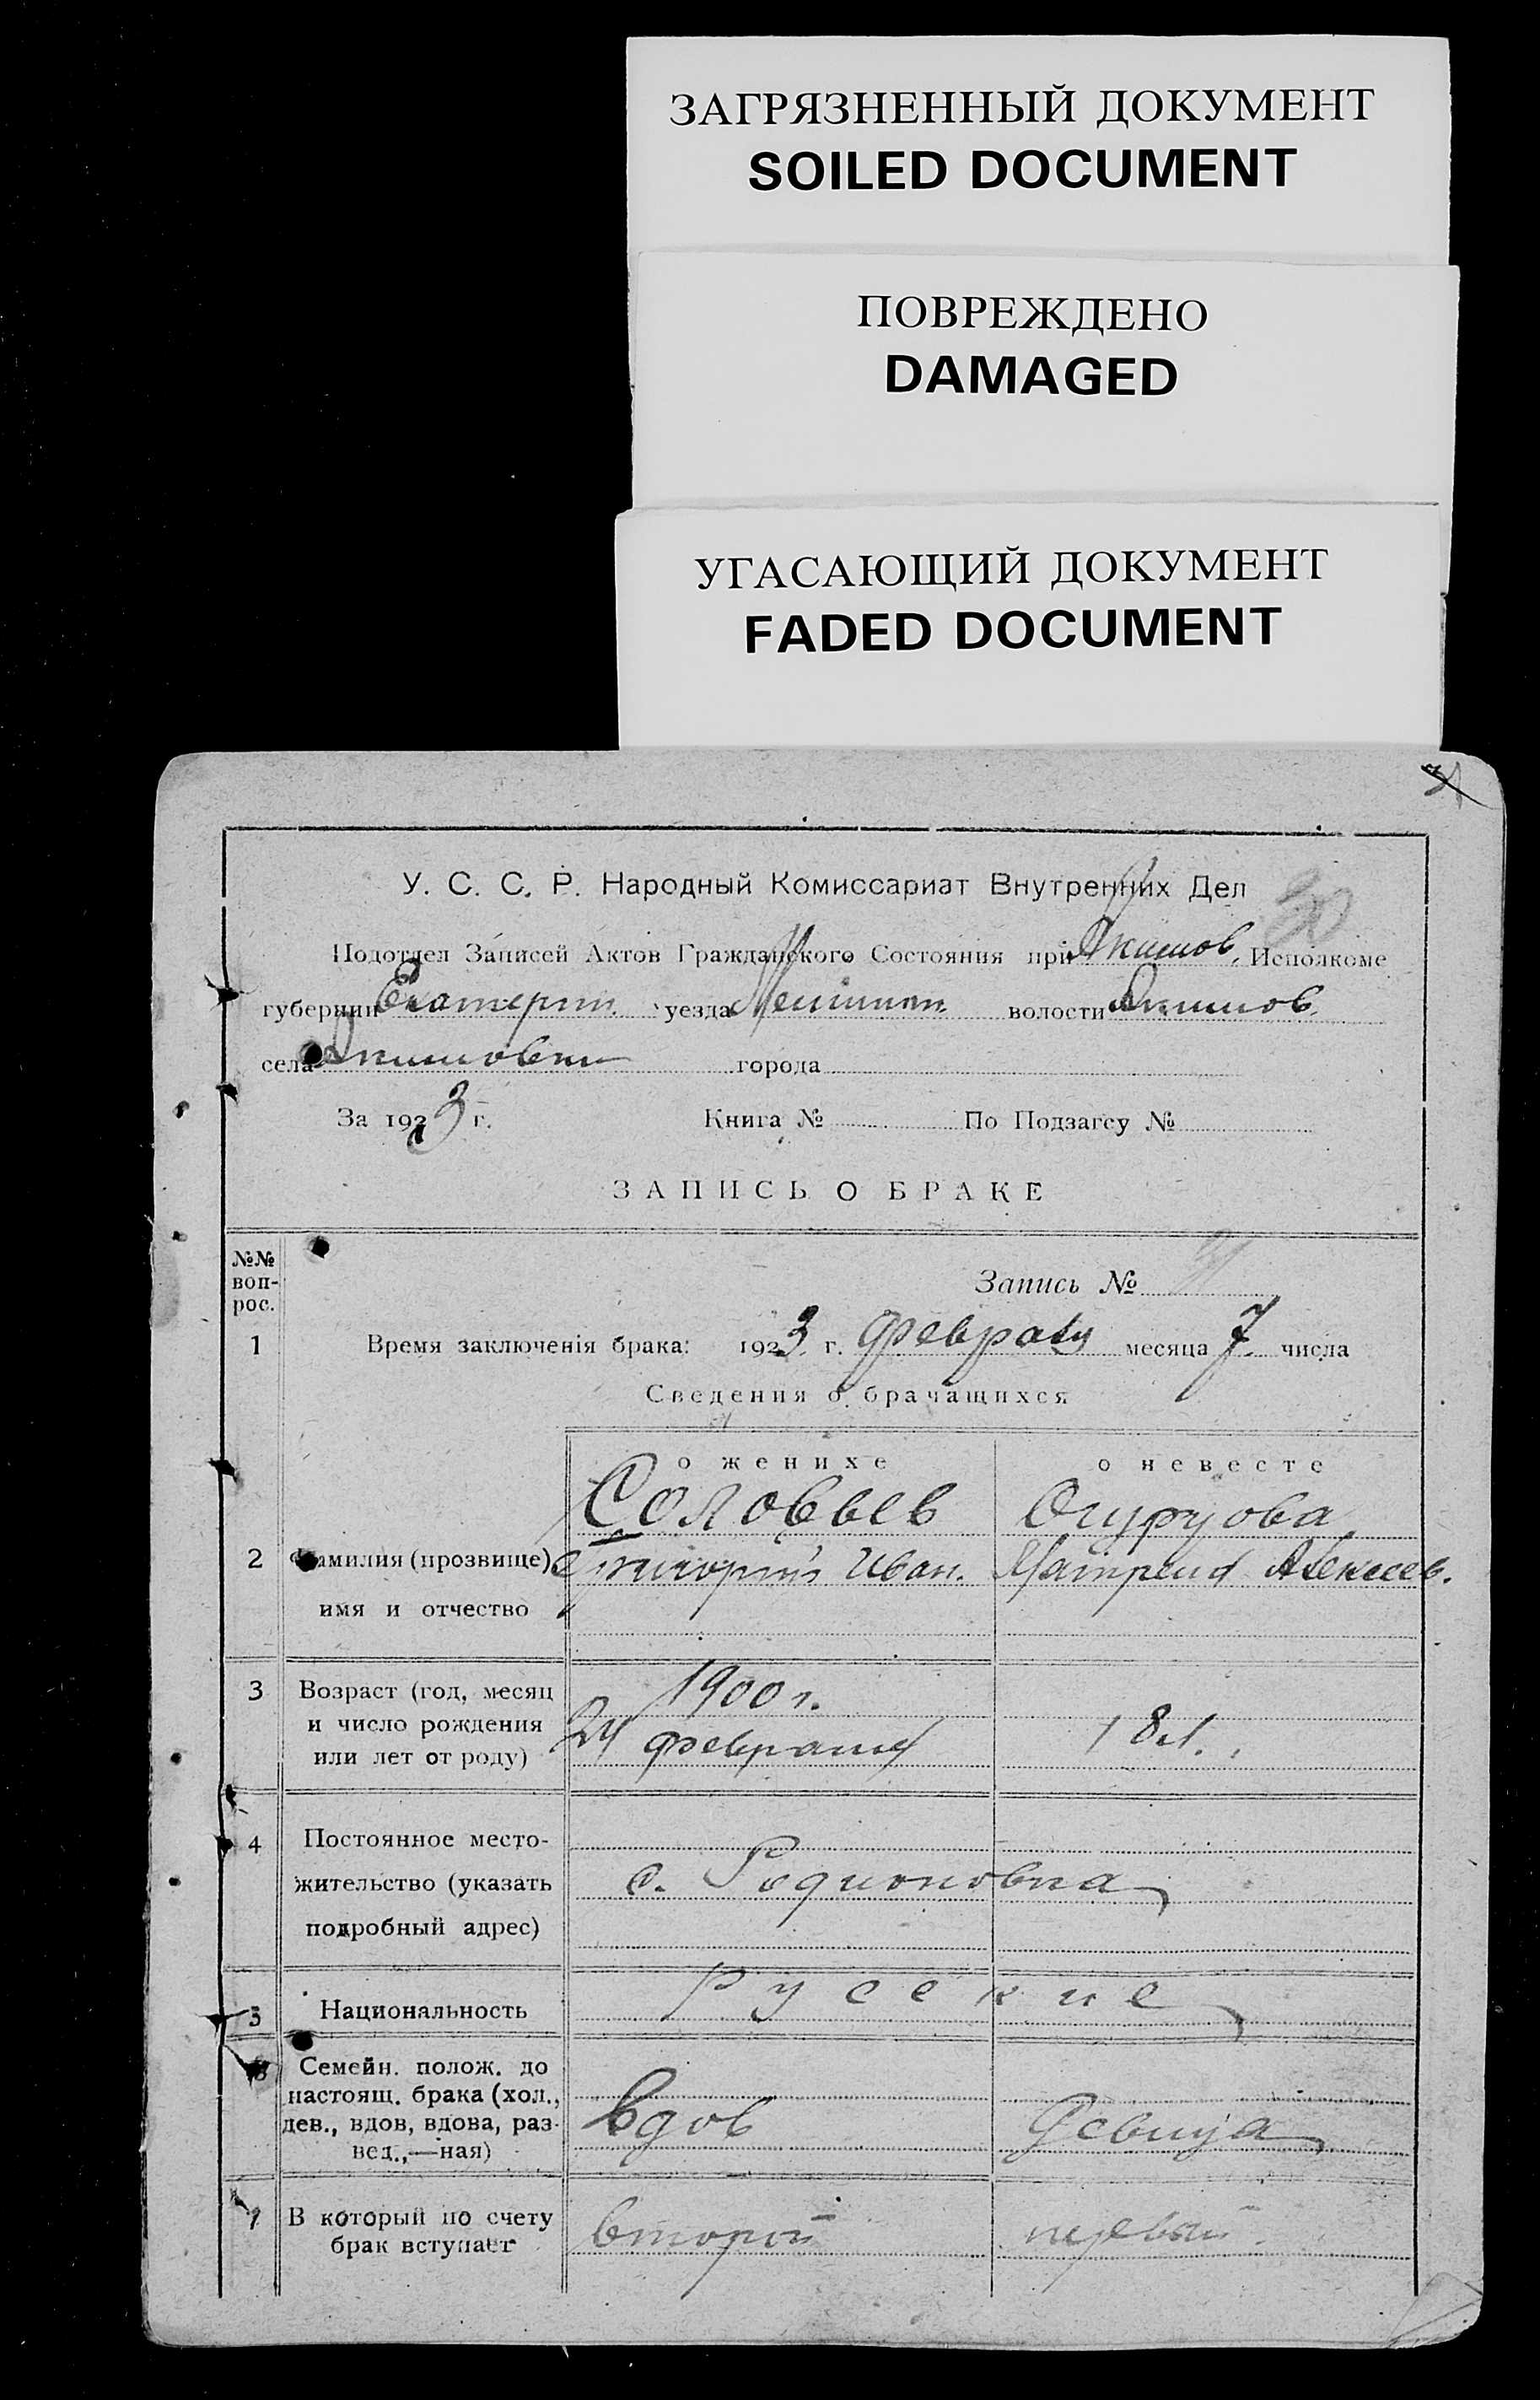 ЗАГРЯЗНЕННЫЙ ДОКУМЕНТ
SOILED DOCUMENT
ПОВРЕЖДЕНО
DAMAGED
УГАСАЮЩИЙ ДОКУМЕНТ
FADED DOCUMENT
У. С. С. Р. Народный Комиссариат Внутренних Дел
Подотдел Записей Актов Гражданского Состояния при Акимов. Исполкоме
губернии Екатерин. уезда волости Акимов.
села Акимовки города
За 1923 г. Книга № По Подзагсу №
ЗАПИСЬ О БРАКЕ
№№ воп-рос.
Запись №
1 Время заключенія брака: 1923 г. февраля месяца 7 числа
Сведения о брачащихся
о женихе о невесте
Соловьев Огурцова
2 Фамилия (прозвище), Григорий Иван. Матрена Алексеев.
имя и отчество
3 Возраст (год, месяц 1900 г.
и число рождения 24 февраля 18 л.
или лет от роду)
4 Постоянное место-
жительство (указать с. Родионовка
подробный адрес)
5 Национальность Русские
6 Семейн. полож. до
настоящ. брака (хол.,
дев., вдов, вдова, раз- вдов девица
вед.,—ная)
7 В который по счету второй первый
брак вступает